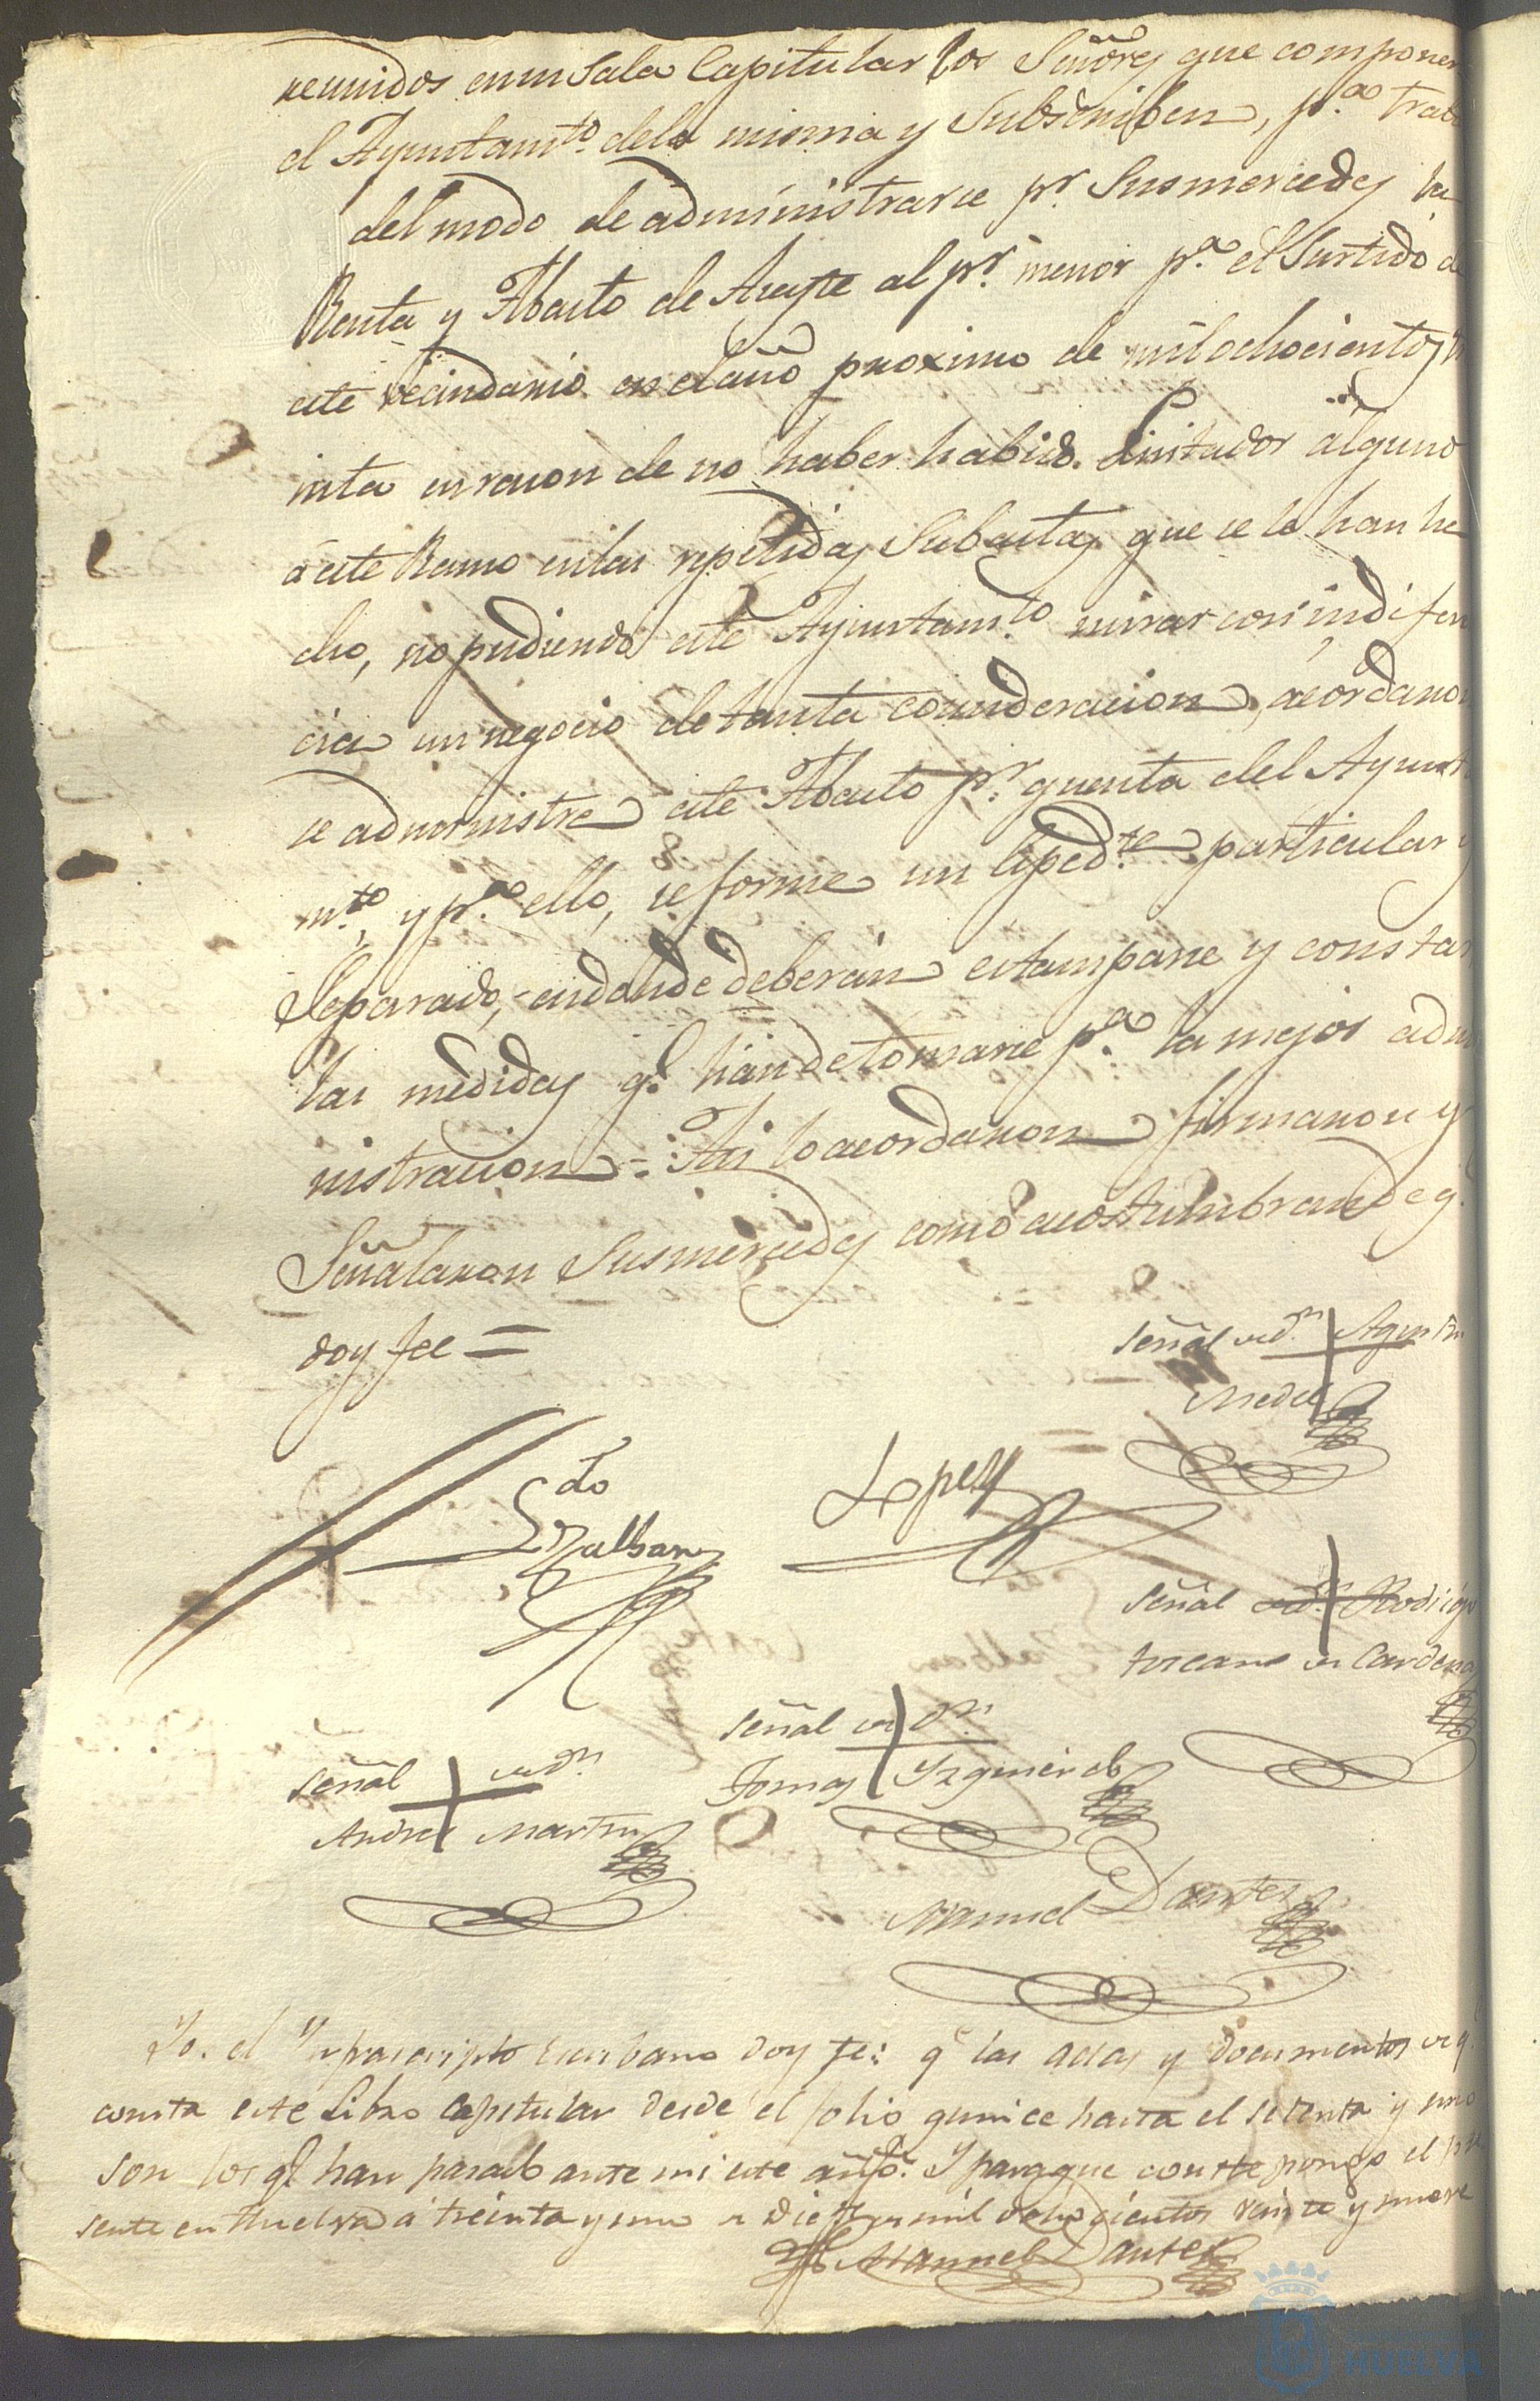 reunidos en su Sala Capitular los Señores que componen
el Ayuntamto. dela misma y Subscriben, pa. trata
del modo de administrarse pr. Susmercedes la
Renta y Abasto de Aceyte al pr. menor pa. el Surtido de
este vecindario en el año proximo de mil ochocientos tre
inta en razon de no haber habido Licitador alguno
á este Ramo en las repetidas Subastas que se le han he
cho, no pudiendo este Ayuntamto. mirar con indiferen
cia un negocio de tanta consideracion, acordaron
se administre este Abasto pr. quenta del Ayunta
mto. y pa. ello, se forme un Espedte. particular y
Separado, en donde deberán estamparse y constar
las medidas q. han de tomarse pa. la mejor admi
nistracion =. Asi lo acordaron firmaron y
Señalaron Susmercedes como acostumbran de q.
doy fee =
Señal de Dn. Agustin
Medel
Ldo
Lopez
Señal de Dn. Rodrigo
toscano de Cardenas
Señal de Dn.
Tomas Yzquierdo
Señal de Dn
Andres Martin
Manuel Dantes
Yo. el Ynfrascripto Escribano doy fe: q las actas y documentos de q.
consta este Libro Capitular desde el folio quince hasta el setenta y uno
son los q. han pasado ante mi este año. Y para que conste pongo el pre
sente en Huelva á treinta y uno de Diez. de mil ochocientos veinte y nueve
Manuel Dantes
HUELVA